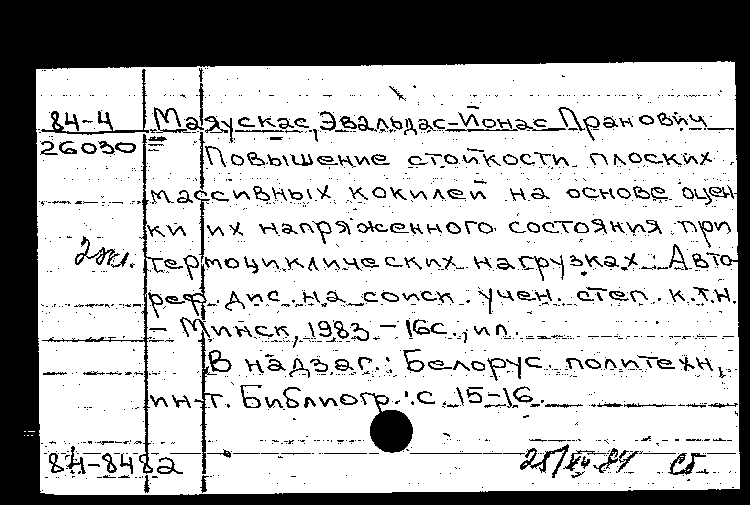 84-4 Маяускас, Эвальдас-Йонас Пранович
26030 Повышение стойкости плоских
массивных кокилей на основе оцен-
ки их напряженного состояния при
2 экз. термоциклических нагрузках : Авто-
реф. дис. на соиск. учен. степ. к.т.н.
- Минск, 1983. - 16с., ил.
В надзаг.: Белорус. политехн.
ин-т. Библиогр.: с. 15-16.
84-8482 25/XII-84 Сб.